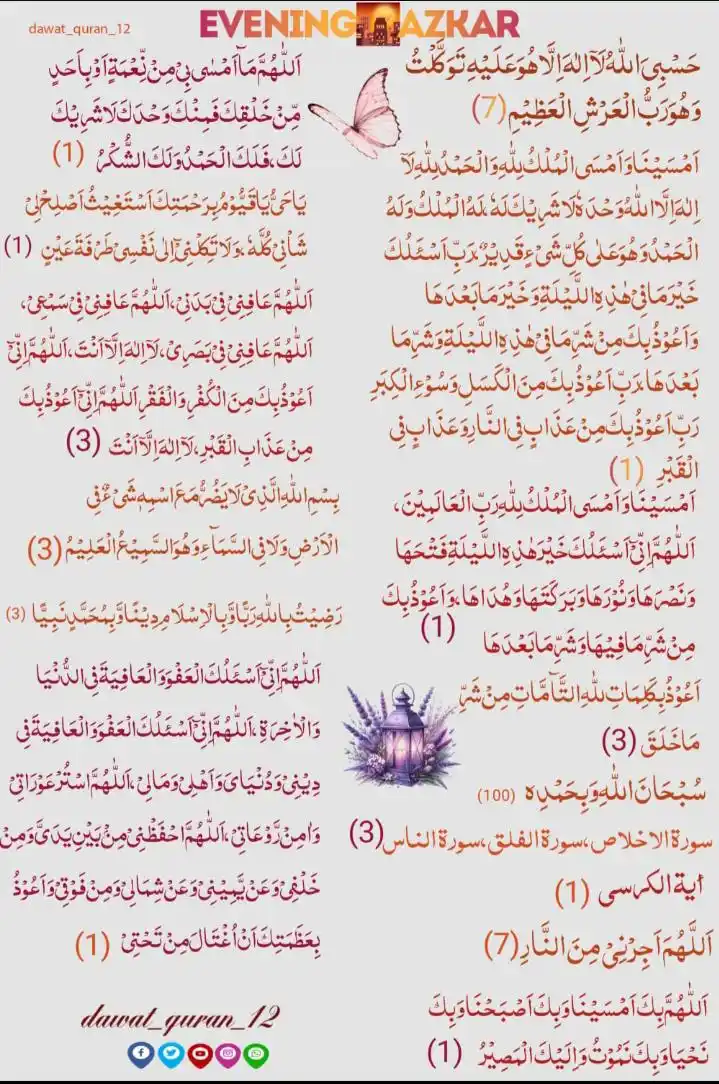 dawat_quran_12
EVENING AZKAR
حَسْبِیَ اللّٰهُ لَآ اِلٰهَ اِلَّا هُوَ عَلَیْهِ تَوَکَّلْتُ
وَهُوَ رَبُّ الْعَرْشِ الْعَظِیْمِ (7)
اَمْسَیْنَا وَاَمْسَی الْمُلْكُ لِلّٰهِ وَالْحَمْدُ لِلّٰهِ لَآ
اِلٰهَ اِلَّا اللّٰهُ وَحْدَهٗ لَا شَرِیْكَ لَهٗ، لَهُ الْمُلْكُ وَلَهُ
الْحَمْدُ وَهُوَ عَلٰی کُلِّ شَیْءٍ قَدِیْرٌ، رَبِّ اَسْئَلُكَ
خَیْرَ مَا فِیْ هٰذِهِ اللَّیْلَةِ وَخَیْرَ مَا بَعْدَهَا
وَاَعُوْذُ بِكَ مِنْ شَرِّ مَا فِیْ هٰذِهِ اللَّیْلَةِ وَشَرِّ مَا
بَعْدَهَا، رَبِّ اَعُوْذُ بِكَ مِنَ الْکَسَلِ وَسُوْءِ الْکِبَرِ
رَبِّ اَعُوْذُ بِكَ مِنْ عَذَابٍ فِی النَّارِ وَعَذَابٍ فِی
الْقَبْرِ (1)
اَمْسَیْنَا وَاَمْسَی الْمُلْكُ لِلّٰهِ رَبِّ الْعَالَمِیْنَ،
اَللّٰهُمَّ اِنِّیْٓ اَسْئَلُكَ خَیْرَ هٰذِهِ اللَّیْلَةِ فَتْحَهَا
وَنَصْرَهَا وَنُوْرَهَا وَبَرَکَتَهَا وَهُدَاهَا، وَاَعُوْذُ بِكَ
مِنْ شَرِّ مَا فِیْهَا وَشَرِّ مَا بَعْدَهَا (1)
اَعُوْذُ بِکَلِمَاتِ اللّٰهِ التَّآمَّاتِ مِنْ شَرِّ
مَا خَلَقَ (3)
سُبْحَانَ اللّٰهِ وَبِحَمْدِهٖ (100)
سورة الاخلاص، سورة الفلق، سورة الناس (3)
اٰیة الکرسی (1)
اَللّٰهُمَّ اَجِرْنِیْ مِنَ النَّارِ (7)
اَللّٰهُمَّ بِكَ اَمْسَیْنَا وَبِكَ اَصْبَحْنَا وَبِكَ
نَحْیَا وَبِكَ نَمُوْتُ وَاِلَیْكَ الْمَصِیْرُ (1)
اَللّٰهُمَّ مَآ اَمْسٰی بِیْ مِنْ نِّعْمَةٍ اَوْ بِاَحَدٍ
مِّنْ خَلْقِكَ فَمِنْكَ وَحْدَكَ لَا شَرِیْكَ
لَكَ، فَلَكَ الْحَمْدُ وَلَكَ الشُّکْرُ (1)
یَا حَیُّ یَا قَیُّوْمُ بِرَحْمَتِكَ اَسْتَغِیْثُ اَصْلِحْ لِیْ
شَاْنِیْ کُلَّهٗ، وَلَا تَکِلْنِیْٓ اِلٰی نَفْسِیْ طَرْفَةَ عَیْنٍ (1)
اَللّٰهُمَّ عَافِنِیْ فِیْ بَدَنِیْ، اَللّٰهُمَّ عَافِنِیْ فِیْ سَمْعِیْ،
اَللّٰهُمَّ عَافِنِیْ فِیْ بَصَرِیْ، لَآ اِلٰهَ اِلَّآ اَنْتَ، اَللّٰهُمَّ اِنِّیْٓ
اَعُوْذُ بِكَ مِنَ الْکُفْرِ وَالْفَقْرِ اَللّٰهُمَّ اِنِّیْٓ اَعُوْذُ بِكَ
مِنْ عَذَابِ الْقَبْرِ، لَآ اِلٰهَ اِلَّآ اَنْتَ (3)
بِسْمِ اللّٰهِ الَّذِیْ لَا یَضُرُّ مَعَ اسْمِهٖ شَیْءٌ فِی
الْاَرْضِ وَلَا فِی السَّمَآءِ وَهُوَ السَّمِیْعُ الْعَلِیْمُ (3)
رَضِیْتُ بِاللّٰهِ رَبًّا وَّبِالْاِسْلَامِ دِیْنًا وَّبِمُحَمَّدٍ نَبِیًّا (3)
اَللّٰهُمَّ اِنِّیْٓ اَسْئَلُكَ الْعَفْوَ وَالْعَافِیَةَ فِی الدُّنْیَا
وَالْاٰخِرَةِ، اَللّٰهُمَّ اِنِّیْٓ اَسْئَلُكَ الْعَفْوَ وَالْعَافِیَةَ فِیْ
دِیْنِیْ وَدُنْیَایَ وَاَهْلِیْ وَمَالِیْ، اَللّٰهُمَّ اسْتُرْ عَوْرَاتِیْ
وَاٰمِنْ رَّوْعَاتِیْ، اَللّٰهُمَّ احْفَظْنِیْ مِنْۢ بَیْنِ یَدَیَّ وَمِنْ
خَلْفِیْ وَعَنْ یَّمِیْنِیْ وَعَنْ شِمَالِیْ وَمِنْ فَوْقِیْ وَاَعُوْذُ
بِعَظَمَتِكَ اَنْ اُغْتَالَ مِنْ تَحْتِیْ (1)
dawat_quran_12